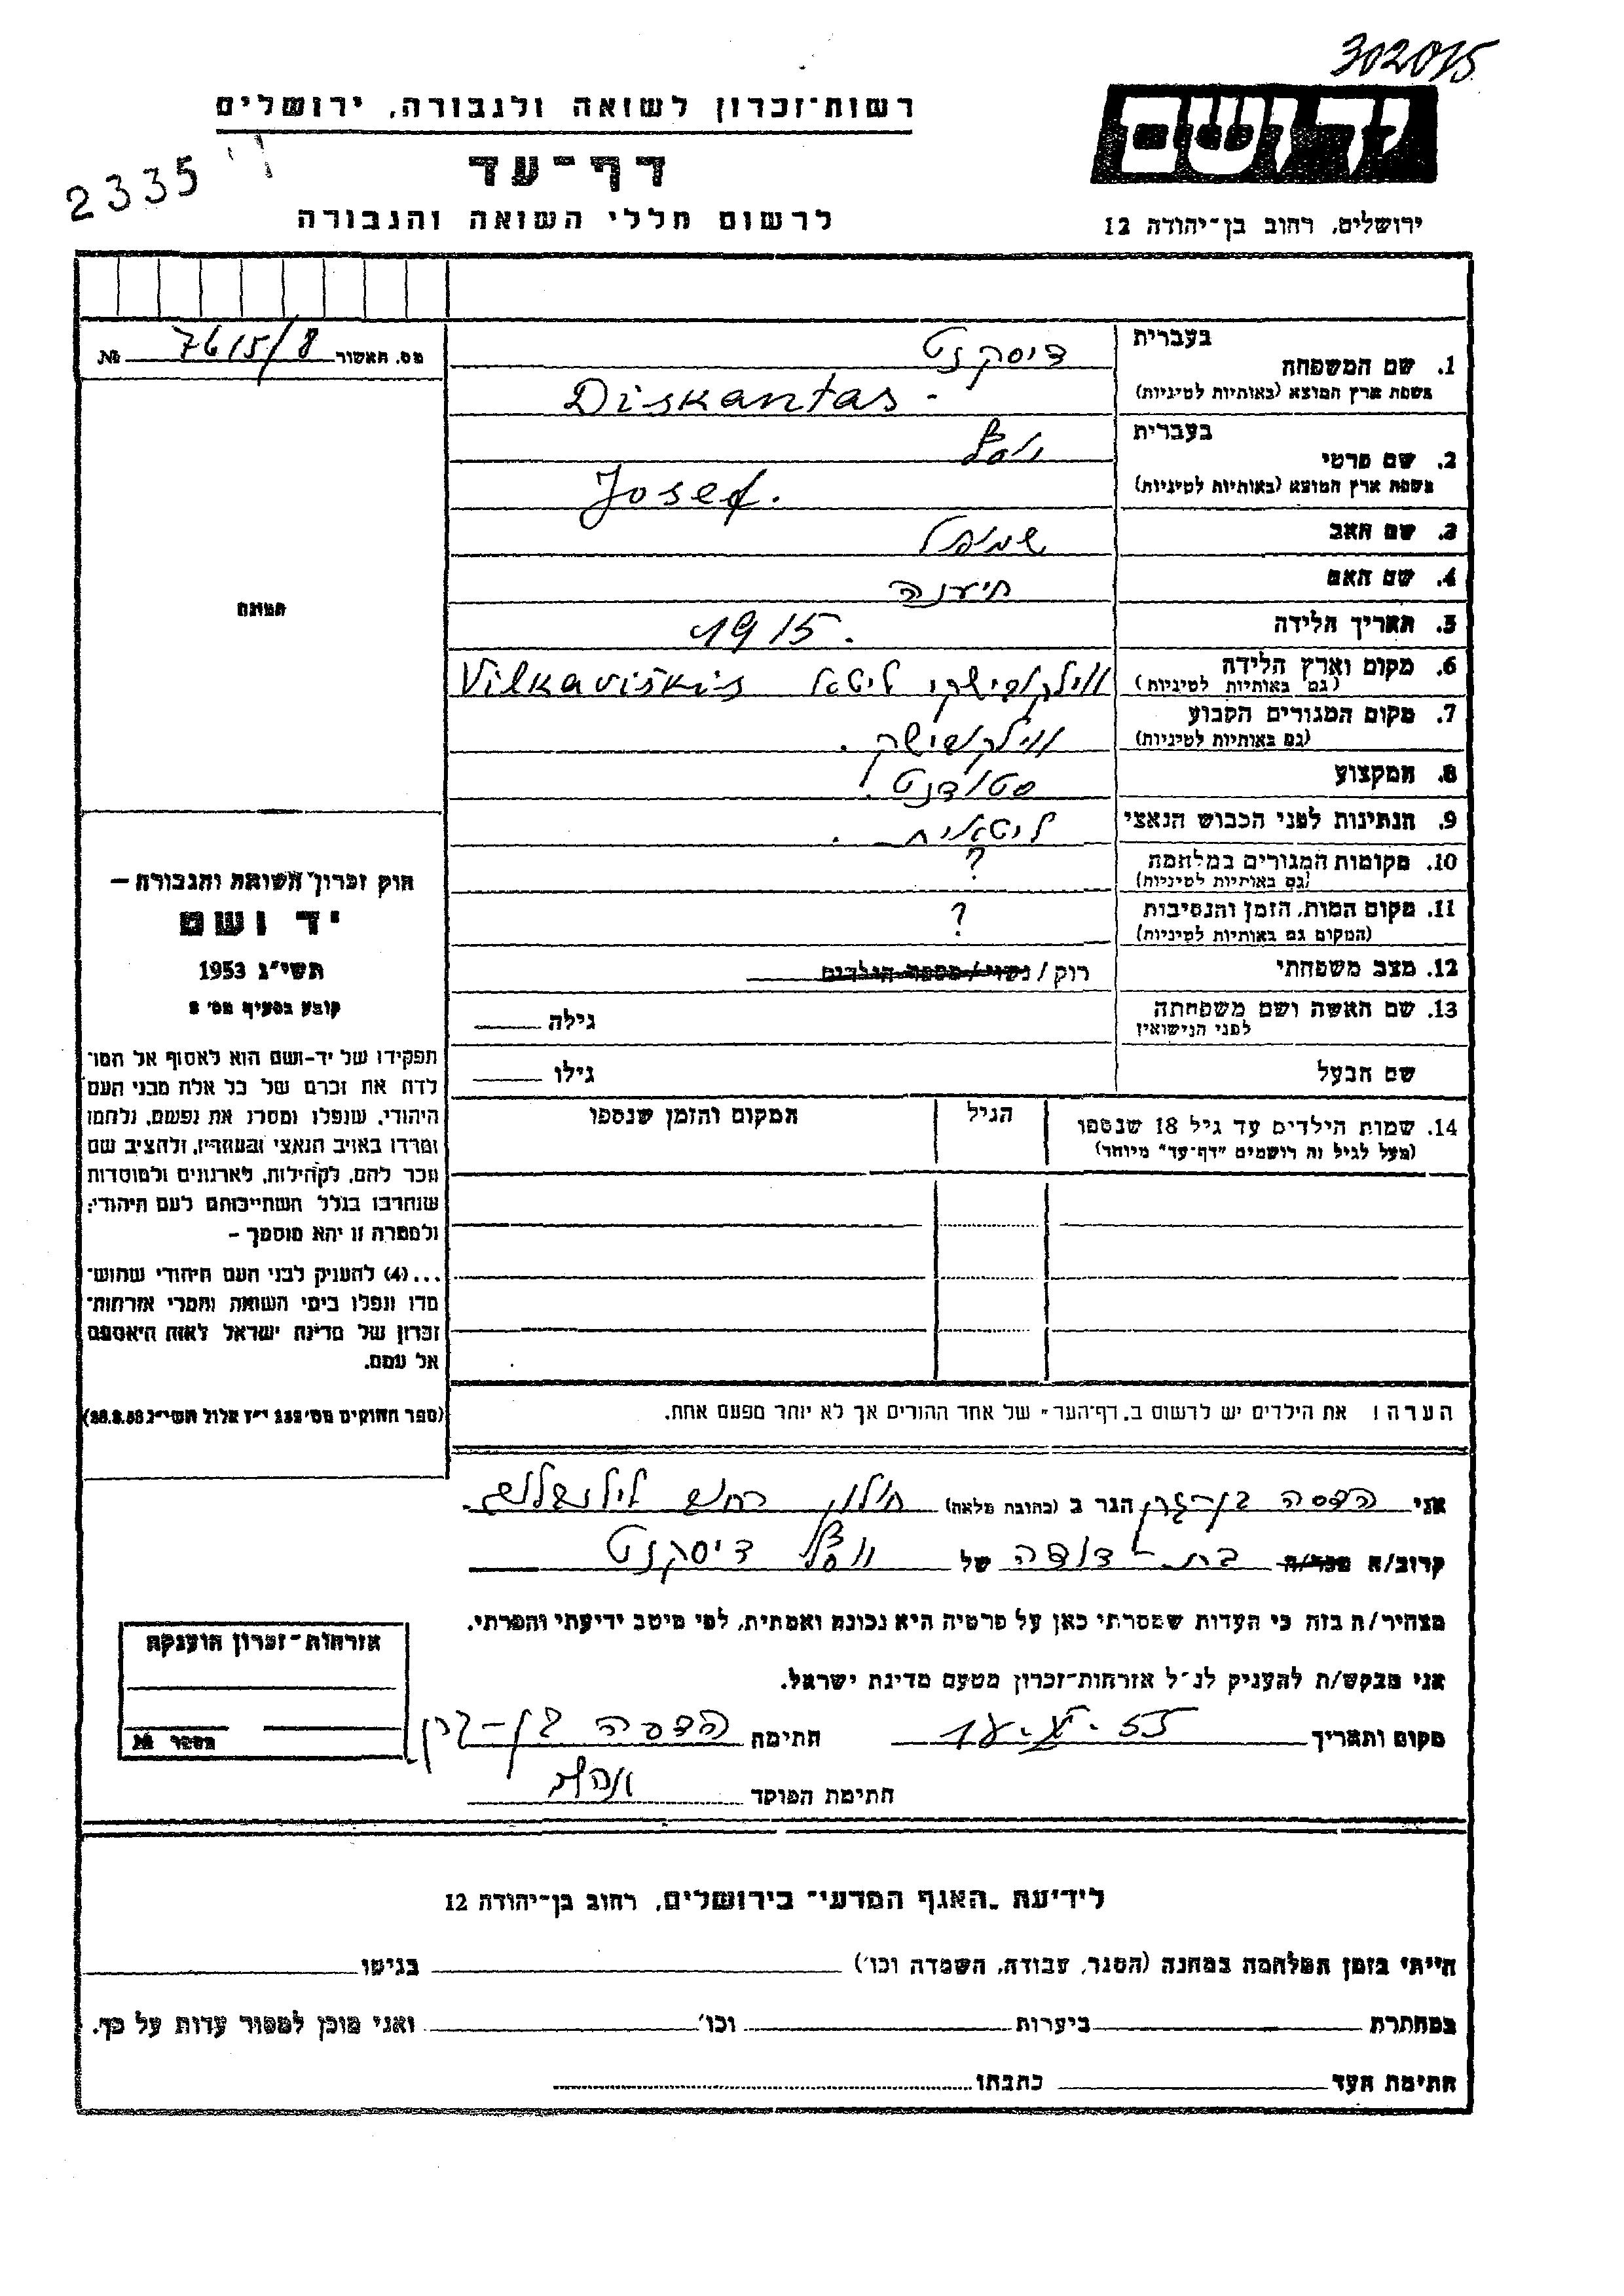 302015
רשות־זכרון לשואה ולגבורה, ירושלים
יד ושם
2335
דף־עד
לרשום חללי השואה והגבורה
ירושלים, רחוב בן־יהודה 12
מס. האשור 7615/8 №
בעברית
1. שם המשפחה דיסקנט
בשפת ארץ המוצא (באותיות לטיניות) Diskantas -
בעברית
2. שם פרטי יוסף
בשפת ארץ המוצא (באותיות לטיניות) Josef.
3. שם האב שמואל
4. שם האם
5. תאריך הלידה 1915.
6. מקום וארץ הלידה ליטא Vilkaviškis
(גם באותיות לטיניות)
7. מקום המגורים הקבוע
(גם באותיות לטיניות)
8. המקצוע סטודנט.
9. הנתינות לפני הכבוש הנאצי ליטאית.
10. מקומות המגורים במלחמה ?
(גם באותיות לטיניות)
11. מקום המות, הזמן והנסיבות ?
(המקום גם באותיות לטיניות)
12. מצב משפחתי רוק / נשוי / מספר הילדים
13. שם האשה ושם משפחתה גילה
לפני הנישואין
שם הבעל גילו
14. שמות הילדים עד גיל 18 שנספו הגיל המקום והזמן שנספו
(מעל לגיל זה רושמים "דף־עד" מיוחד)
הערה: את הילדים יש לרשום ב„דף־העד" של אחד ההורים אך לא יותר מפעם אחת.
תמונה
חוק זכרון השואה והגבורה –
יד ושם
תשי"ג 1953
קובע בסעיף מס' 2
תפקידו של יד-ושם הוא לאסוף אל המו־
לדת את זכרם של כל אלה מבני העם
היהודי, שנפלו ומסרו את נפשם, נלחמו
ומרדו באויב הנאצי ובעוזריו, ולהציב שם
וזכר להם, לקהילות, לארגונים ולמוסדות
שנחרבו בגלל השתייכותם לעם היהודי;
ולמטרה זו יהא מוסמך –
...(4) להעניק לבני העם היהודי שהוש־
מדו ונפלו בימי השואה והמרי אזרחות־
זכרון של מדינת ישראל לאות היאספם
אל עמם.
(ספר החוקים מס' 132 י"ז אלול תשי"ג 28.8.53)
אני הדסה בן-גרון הגר ב (כתובת מלאה) חולון רחוב
קרוב/ה מכר/ה בת-דודה של יוסף דיסקנט
מצהיר/ה בזה כי העדות שמסרתי כאן על פרטיה היא נכונה ואמתית, לפי מיטב ידיעתי והכרתי.
אני מבקש/ת להעניק לנ"ל אזרחות־זכרון מטעם מדינת ישראל.
מקום ותאריך חתימה הדסה בן-גרון
חתימת הפוקד
אזרחות־זכרון הוענקה
מספר №
לידיעת „האגף המדעי" בירושלים, רחוב בן־יהודה 12
הייתי בזמן המלחמה במחנה (הסגר, עבודה, השמדה וכו') בגיטו
במחתרת ביערות וכו' ואני מוכן למסור עדות על כך.
חתימת העד כתבתו